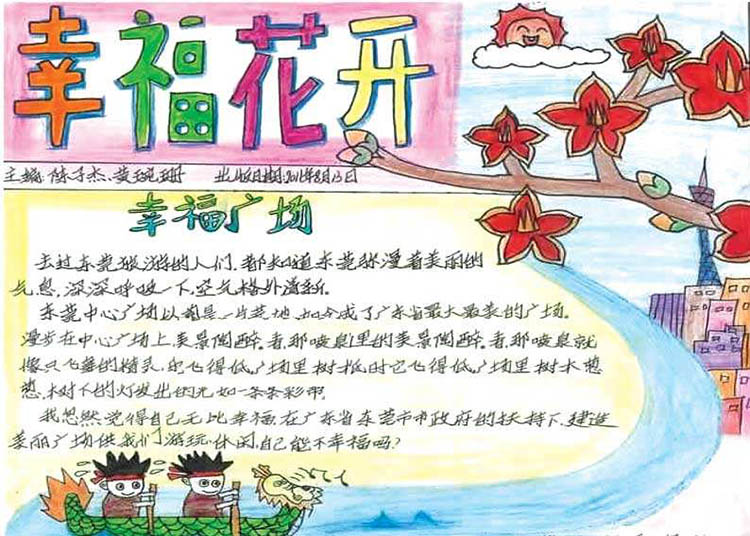 幸福花开
主编:陈子杰、黄琬珊 出版日期:2011年8月13日
幸福广场
去过东莞旅游的人们,都知道东莞弥漫着美丽的
气息,深深呼吸一下,空气格外清新。
东莞中心广场以前是一片荒地,如今成了广东省最大最美的广场。
漫步在中心广场上,美景陶醉着,那喷泉里的美景陶醉着,那喷泉就
像只飞舞的精灵,它飞得低,广场里树低时它飞得低,广场里树木
树下的灯发出的光如一条条彩带。
我忽然觉得自己无比幸福,在广东省东莞市市政府的扶持下,建造
美丽广场供我们游玩、休闲,自己能不幸福吗?